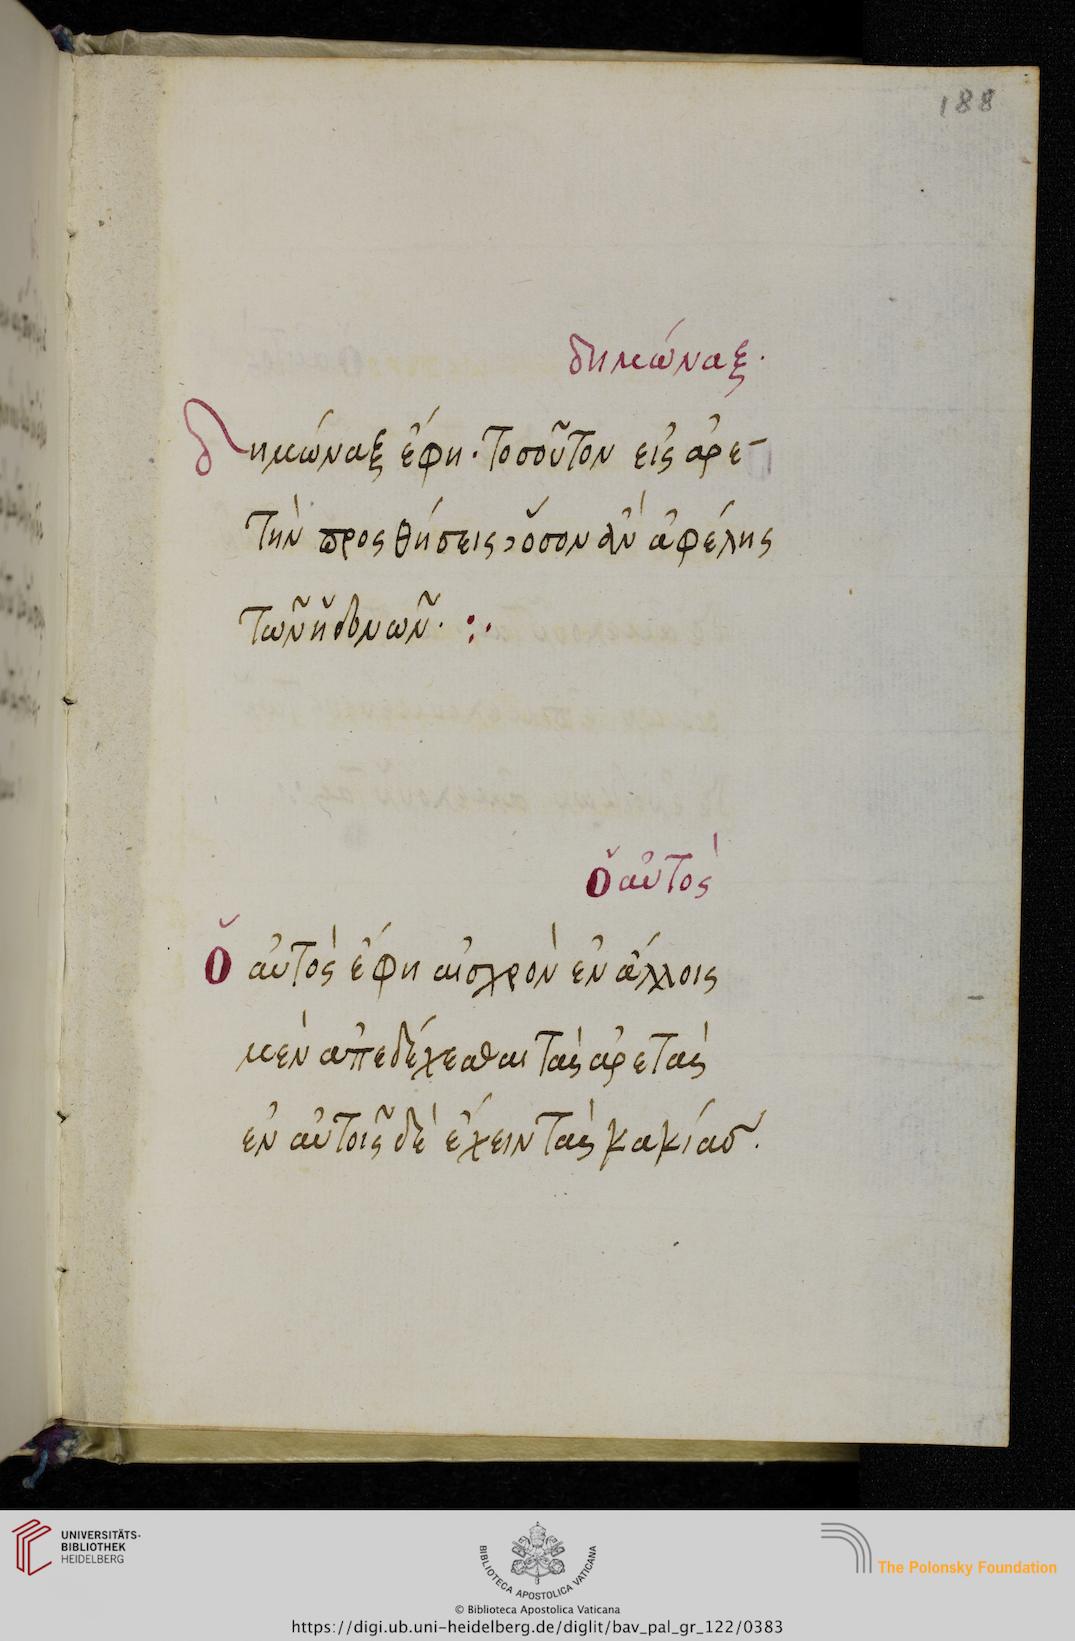 188
δημώναξ.
δημώναξ ἔφη· τοσοῦτον εἰς ἀρε-
τὴν προςθήσεις, ὅσον ἂν ἀφέλης
τῶν ἡδονῶν. :·
Ὁ αὐτὸς
Ὁ αὐτὸς ἔφη αἰσχρὸν ἐν ἄλλοις
μὲν ἀπεδέχεσθαι τὰς ἀρετὰς
ἐν αὐτοῖς δὲ ἔχειν τὰς κακίας.
UNIVERSITÄTS-
BIBLIOTHEK
HEIDELBERG
BIBLIOTECA APOSTOLICA VATICANA
The Polonsky Foundation
© Biblioteca Apostolica Vaticana
https://digi.ub.uni-heidelberg.de/diglit/bav_pal_gr_122/0383